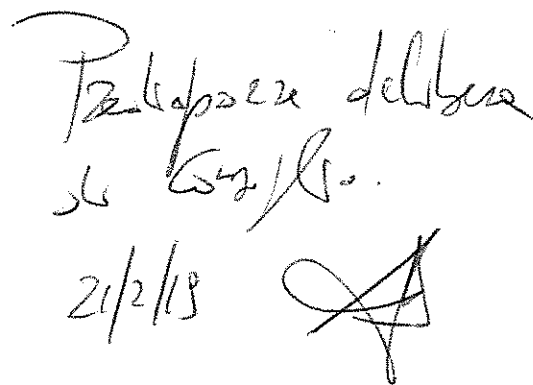 Predisporre delibera
di Consiglio.
21/2/19